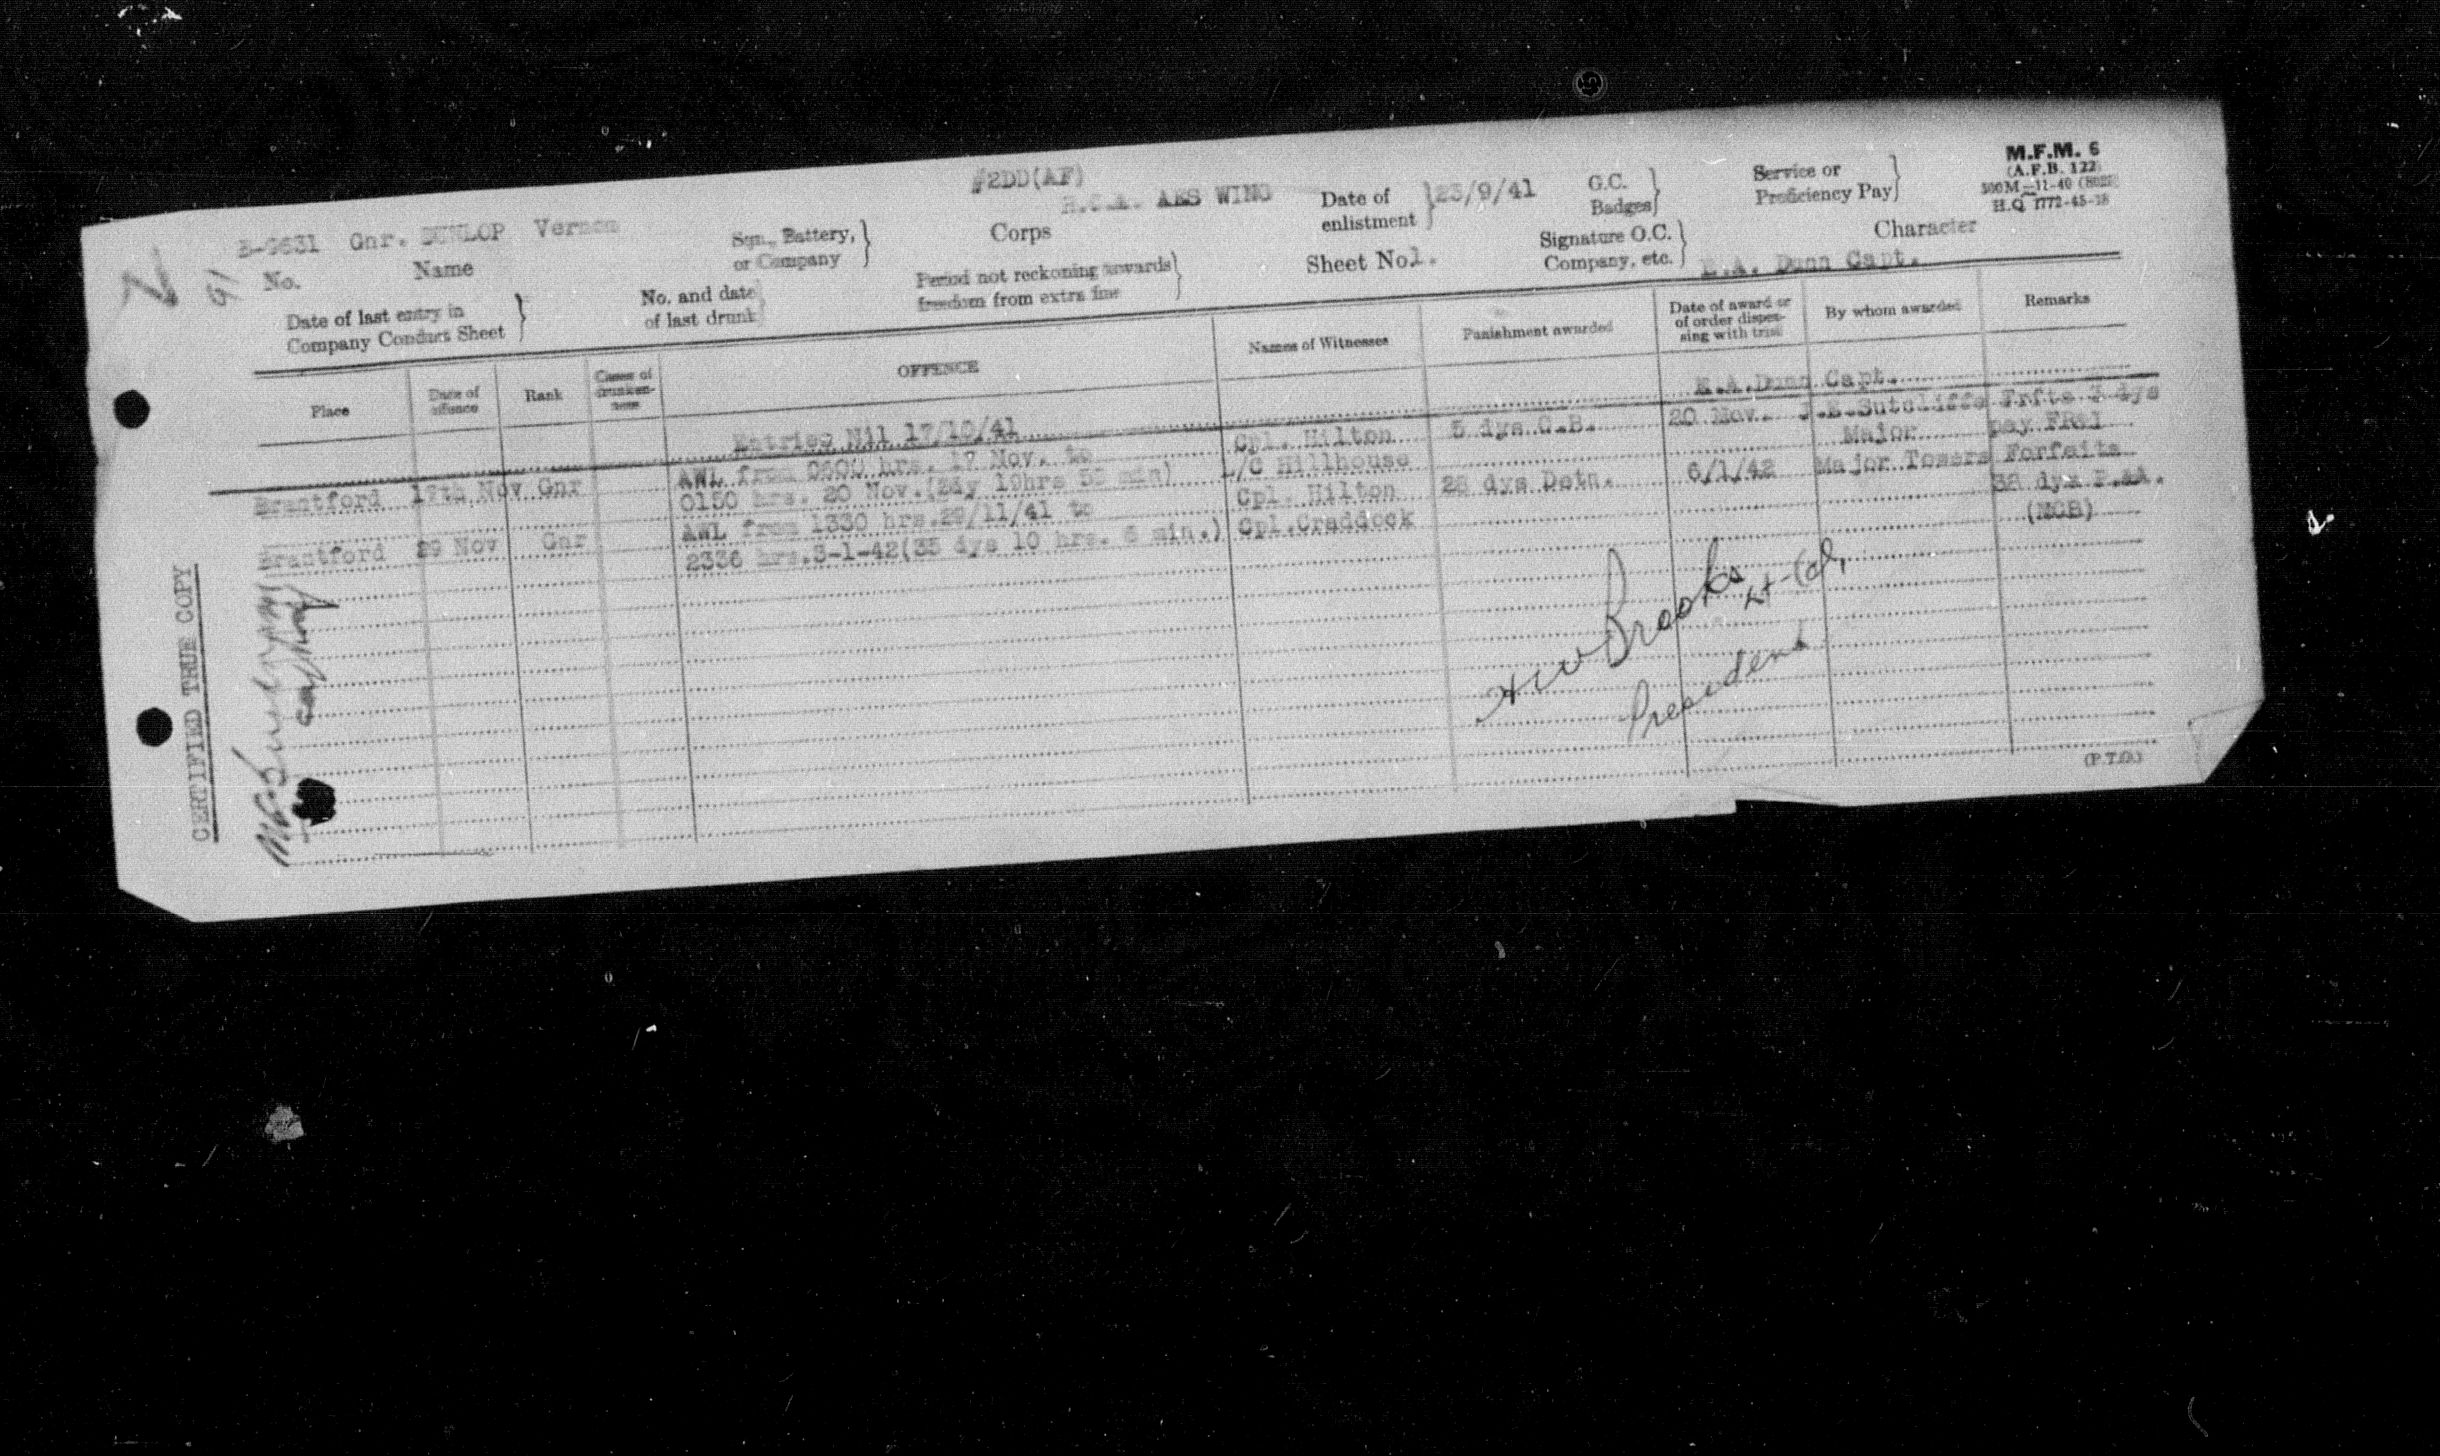 #2DD(AF)
R.C.A. AES WING
M.F.M. 6
(A.F.B. 122)
500M—11-40
H.Q. 1772-45-18
B-9631 Gnr. DUNLOP Vernon
No. Name
Sqn., Battery, or Company
Corps
Date of enlistment 23/9/41
G.C. Badges
Service or Proficiency Pay
Date of last entry in Company Conduct Sheet
No. and date of last drunk
Period not reckoning towards freedom from extra fine
Sheet No. 1.
Signature O.C. Company, etc. E.A. Dunn Capt.
Character
Place
Date of offence
Rank
Cases of drunkenness
OFFENCE
Names of Witnesses
Punishment awarded
Date of award or of order dispensing with trial
By whom awarded
Remarks
Entries Nil 17/10/41 E.A.Dunn Capt.
Brantford 17th Nov Gnr AWL from 0600 hrs. 17 Nov. to Cpl. Hilton 5 dys C.B. 20 Nov. J.E.Sutcliffe Frfts 3 dys
0150 hrs. 20 Nov.(2dy 19hrs 50 min) L/C Hillhouse Major pay FR&I
Brantford 29 Nov Gnr AWL from 1330 hrs.29/11/41 to Cpl. Hilton 28 dys Detn. 6/1/42 Major Towers Forfeits
2336 hrs.3-1-42(35 dys 10 hrs. 6 min.) Cpl.Craddock 38 dys P.&A.
(MCB)
Brooks Lt-Col,
President
CERTIFIED TRUE COPY
(P.T.O.)